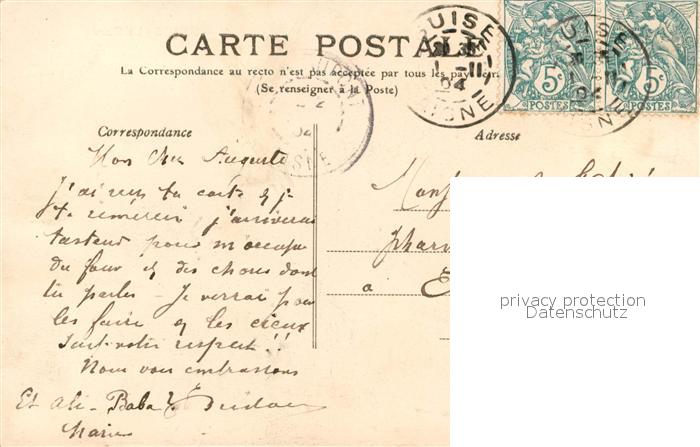 CARTE POSTALE
La Correspondance au recto n'est pas acceptée par tous les pays
(Se renseigner à la Poste)
Correspondance
Adresse
GUISE
AISNE
04
5c
POSTES
5c
POSTES
Mon cher Auguste
J'ai reçu ta carte & je
te remercie j'arriverai
pour m'occuper
du four & des choux dont
tu parles - Je verrai pour
les faire & les cieux
Sont votre respect !!
Nous vous embrassons
Et Ali-Baba &
Marie
Monsieur
à
privacy protection
Datenschutz